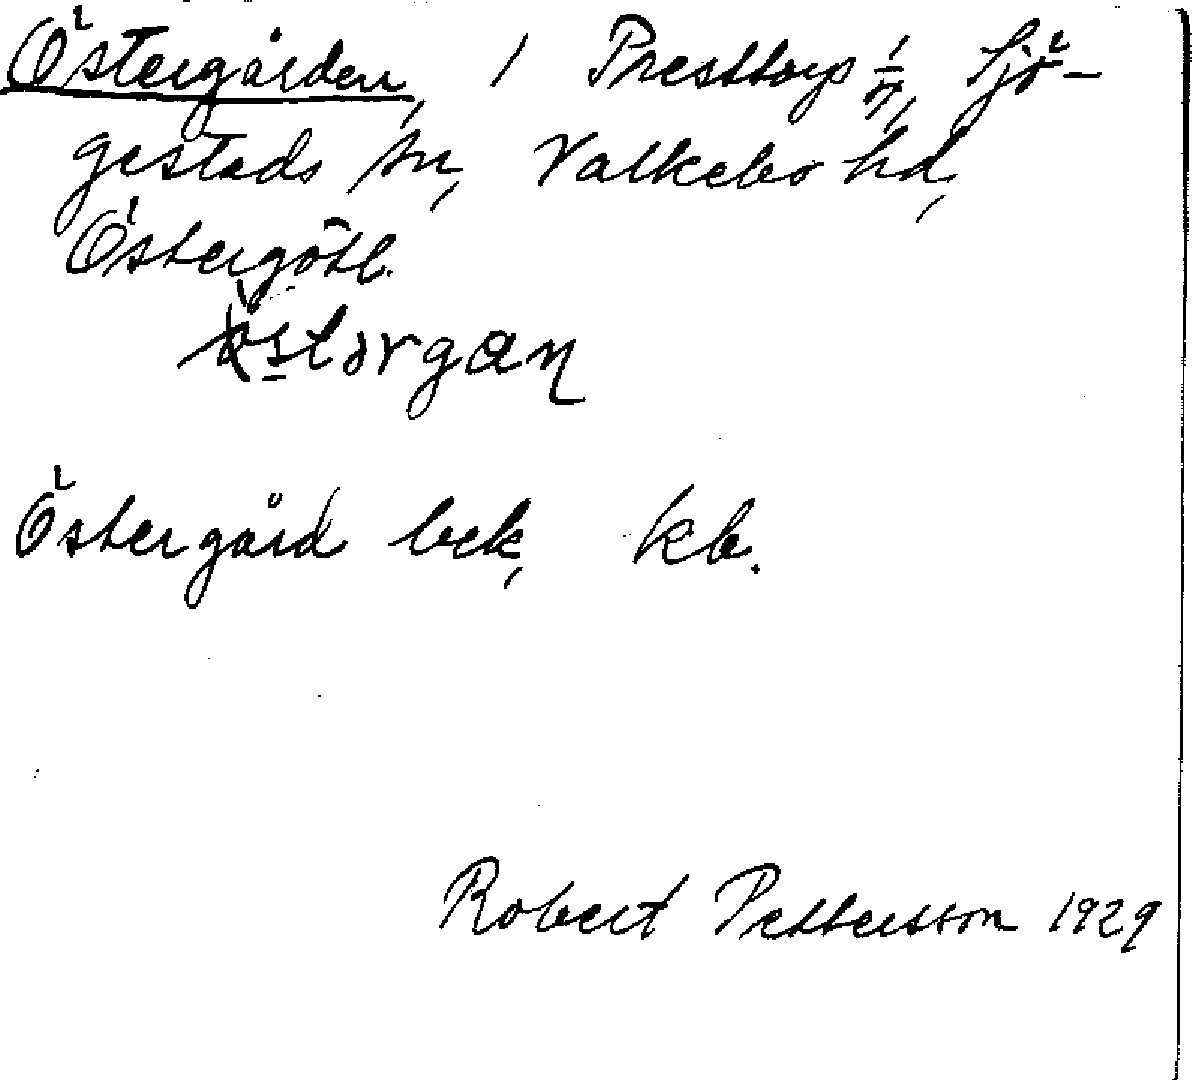 Östergården, / Presttorp 1/7, Sjö-
gestads sn, Valkebo hd,
Östergötl.
Östergård bek, kb.
Robert Pettersson 1929